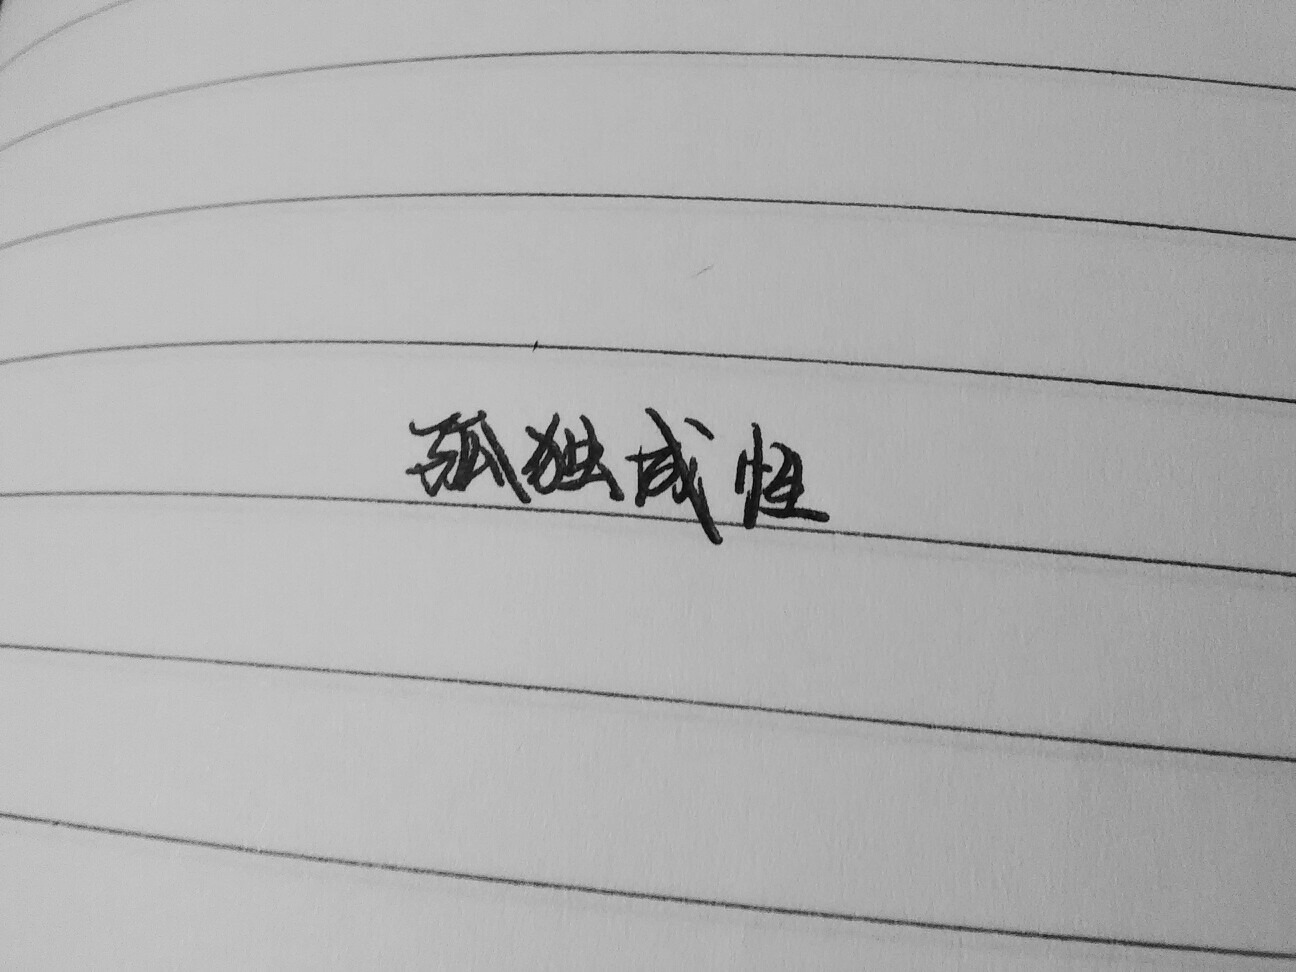 孤独成性